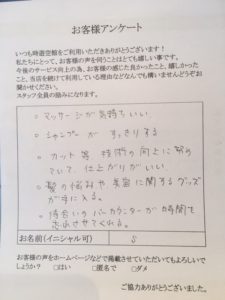 お客様アンケート
いつも時遊空館をご利用いただきありがとうございます!
私たちにとって、お客様の声を伺うことはとても嬉しい事です。
今後のサービス向上の為、お客様の感じた良かったこと、嬉しかったこ
と、当店を続けて利用している理由などなんでも構いませんどうぞお
聞かせください。
スタッフ全員の励みになります。
○マッサージが気持ちいい。
○シャンプーがすっきりする
○カット等 技術の向上に努め
ていて、仕上がりがいい
○髪の悩みや美容に関するグッズ
が手に入る。
○待合いのバーカウンターが時間を
忘れさせてくれる。
お名前(イニシャル可) S
お客様の声をホームページなどで掲載させていただいてもよろしいで
しょうか? □はい □匿名で □ダメ
ご協力ありがとうございました。